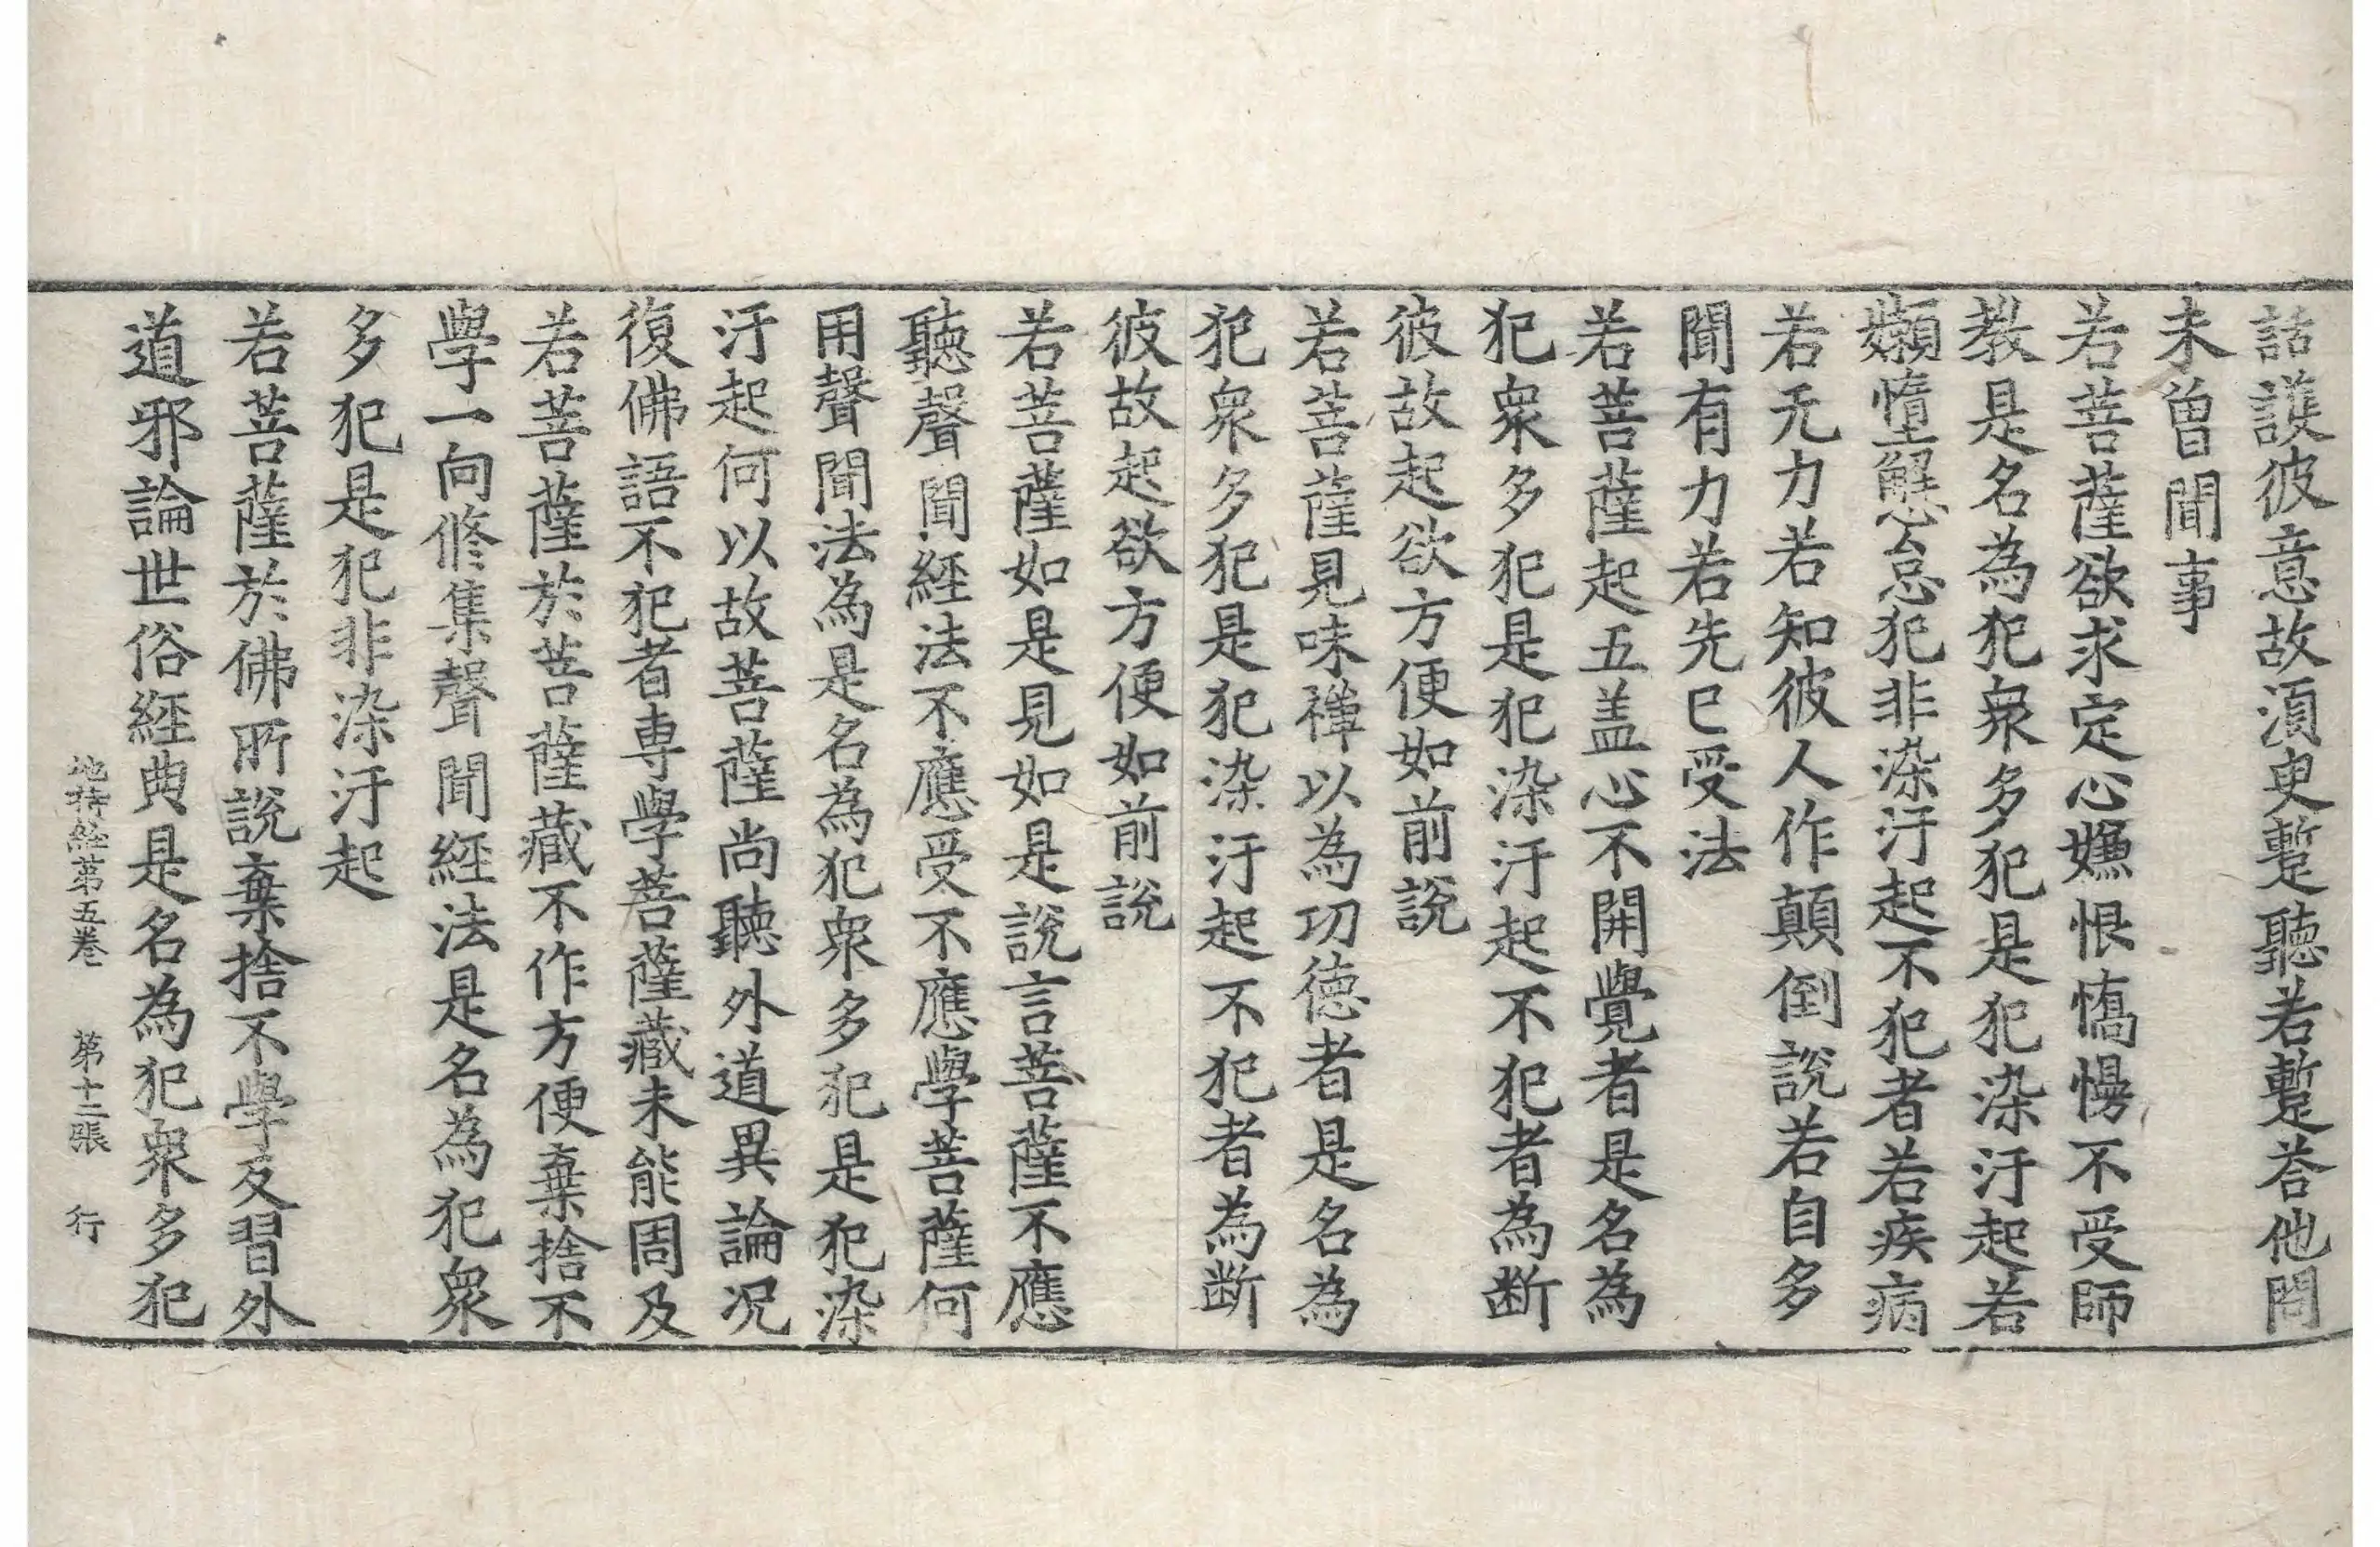 話護彼意故湏臾蹔聽若蹔荅他問
未曾聞事
若菩薩欲求定心嫌恨憍慢不受師
教是名為犯衆多犯是犯染汙起若
嬾惰懈怠犯非染汙起不犯者若疾病
若无力若知彼人作顛倒說若自多
聞有力若先已受法
若菩薩起五盖心不開覺者是名為
犯衆多犯是犯染汙起不犯者為断
彼故起欲方便如前說
若菩薩見味禪以為功德者是名為
犯衆多犯是犯染汙起不犯者為断
彼故起欲方便如前說
若菩薩如是見如是說言菩薩不應
聽聲聞經法不應受不應學菩薩何
用聲聞法為是名為犯衆多犯是犯染
汙起何以故菩薩尚聽外道異論况
復佛語不犯者專學菩薩藏未能周及
若菩薩於菩薩藏不作方便棄捨不
學一向修集聲聞經法是名為犯衆
多犯是犯非染汙起
若菩薩於佛所說棄捨不學反習外
道邪論世俗經典是名為犯衆多犯
地持經第五卷 第十二張 行